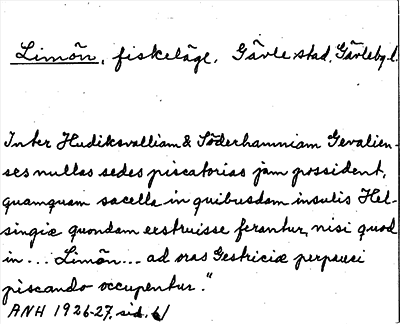 Limön, fiskeläge. Gävle stad, Gävleby. l.
Inter Hudiksvalliam & Söderhamniam Gevalien-
ses nullas sedes piscatorias jam possident,
quamquam sacella in quibusdam insulis Hel-
singiæ quondam exstruisse ferantur, nisi quod
in ... Limön ... ad oras Gestriciæ perpauci
piscando occupentur."
ANH 1926-27, sid. 61